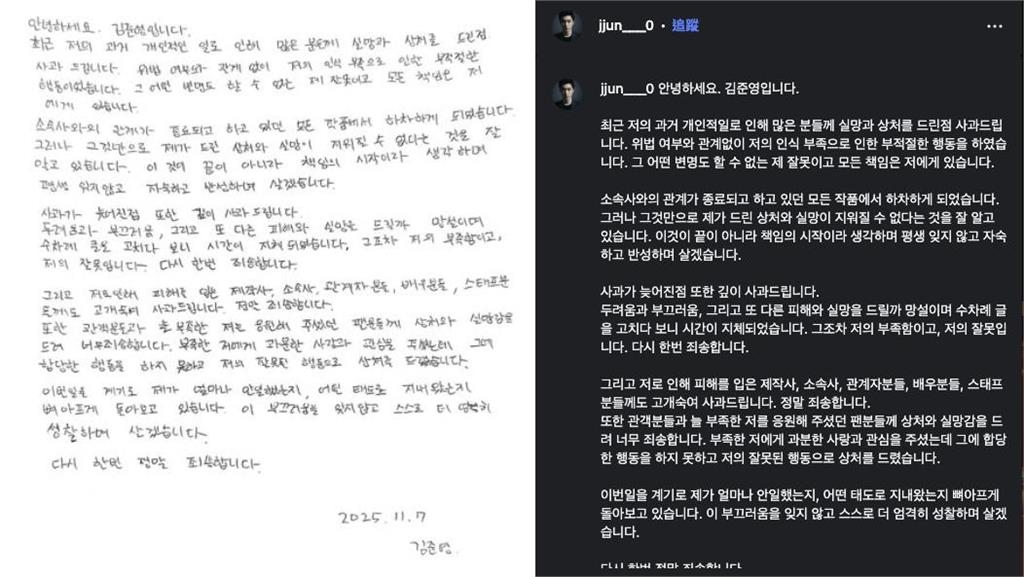 안녕하세요. 김준영입니다.
최근 저의 과거 개인적인 일로 인해 많은 분들께 실망과 상처를 드린점
사과드립니다. 위법 여부와 관계 없이 저의 인식 부족으로 인한 부적절한
행동이었습니다. 그 어떤 변명도 할 수 없는 제 잘못이고 모든 책임은 저
에게 있습니다.
소속사와의 관계가 종료되고 하고 있던 모든 작품에서 하차하게 되었습니다.
그러나 그것만으로 제가 드린 상처와 실망이 지워질 수 없다는 것을 잘
알고 있습니다. 이 것이 끝이 아니라 책임의 시작이라 생각하며
평생 잊지않고 자숙하고 반성하며 살겠습니다.
사과가 늦어진점 또한 깊이 사과드립니다.
두려움과 부끄러움, 그리고 또 다른 피해와 실망을 드릴까 망설이며
수차례 글을 고치다 보니 시간이 지체 되었습니다. 그조차 저의 부족함이고,
저의 잘못입니다. 다시 한번 죄송합니다.
그리고 저로인해 피해를 입은 제작사, 소속사, 관계자분들, 배우분들, 스태프분
들께도 고개숙여 사과드립니다. 정말 죄송합니다.
또한 관객분들과 늘 부족한 저를 응원해 주셨던 팬분들께 상처와 실망감을
드려 너무 죄송합니다. 부족한 저에게 과분한 사랑과 관심을 주셨는데 그에
합당한 행동을 하지 못하고 저의 잘못된 행동으로 상처를 드렸습니다.
이번일을 계기로 제가 얼마나 안일했는지, 어떤 태도로 지내왔는지
뼈아프게 돌아보고 있습니다. 이 부끄러움을 잊지않고 스스로 더 엄격히
성찰하며 살겠습니다.
다시 한번 정말 죄송합니다.
2025.11.7
김준영.
jjun___0 • 追蹤
jjun___0 안녕하세요. 김준영입니다.
최근 저의 과거 개인적일로 인해 많은 분들께 실망과 상처를 드린점 사과드립
니다. 위법 여부와 관계없이 저의 인식 부족으로 인한 부적절한 행동을 하였습
니다. 그 어떤 변명도 할 수 없는 제 잘못이고 모든 책임은 저에게 있습니다.
소속사와의 관계가 종료되고 하고 있던 모든 작품에서 하차하게 되었습니다.
그러나 그것만으로 제가 드린 상처와 실망이 지워질 수 없다는 것을 잘 알고
있습니다. 이것이 끝이 아니라 책임의 시작이라 생각하며 평생 잊지 않고 자숙
하고 반성하며 살겠습니다.
사과가 늦어진점 또한 깊이 사과드립니다.
두려움과 부끄러움, 그리고 또 다른 피해와 실망을 드릴까 망설이며 수차례 글
을 고치다 보니 시간이 지체되었습니다. 그조차 저의 부족함이고, 저의 잘못입
니다. 다시 한번 죄송합니다.
그리고 저로 인해 피해를 입은 제작사, 소속사, 관계자분들, 배우분들, 스태프
분들께도 고개숙여 사과드립니다. 정말 죄송합니다.
또한 관객분들과 늘 부족한 저를 응원해 주셨던 팬분들께 상처와 실망감을 드
려 너무 죄송합니다. 부족한 저에게 과분한 사랑과 관심을 주셨는데 그에 합당
한 행동을 하지 못하고 저의 잘못된 행동으로 상처를 드렸습니다.
이번일을 계기로 제가 얼마나 안일했는지, 어떤 태도로 지내왔는지 뼈아프게
돌아보고 있습니다. 이 부끄러움을 잊지 않고 스스로 더 엄격히 성찰하며 살겠
습니다.
다시 한번 정말 죄송합니다